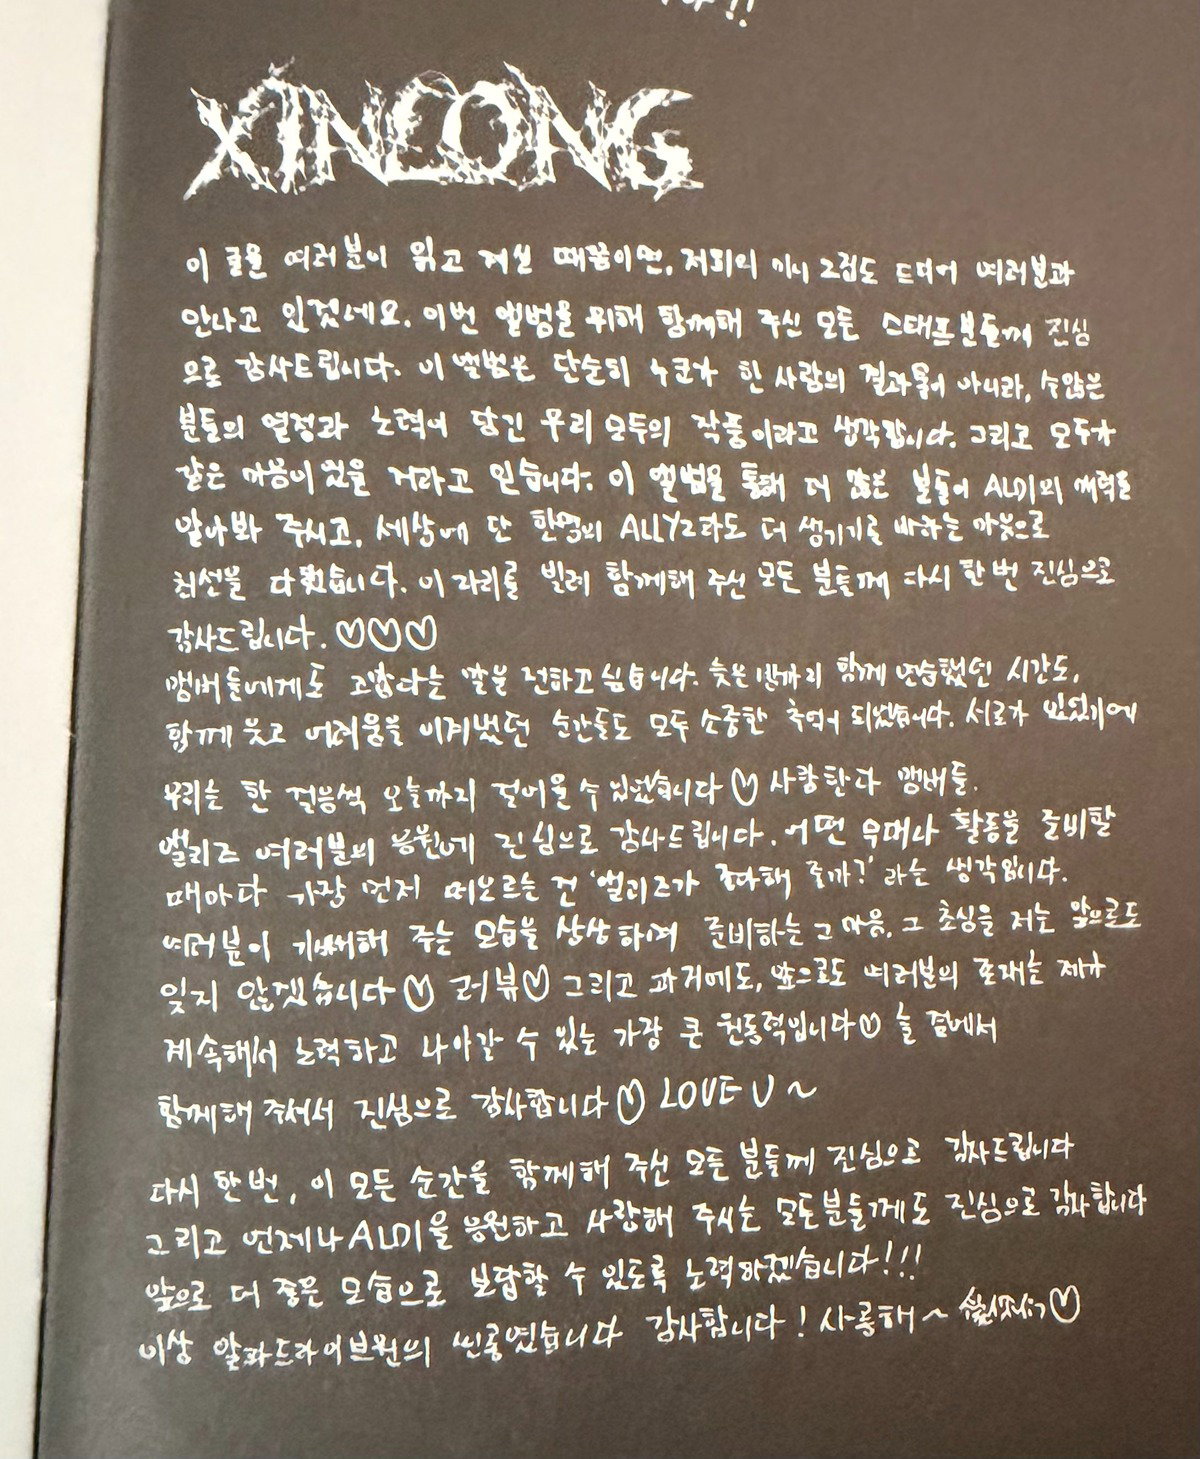 !!
XINLONG
이 글을 여러분이 읽고 계실 때쯤이면, 저희의 미니 2집도 드디어 여러분과
만나고 있겠네요. 이번 앨범을 위해 함께해 주신 모든 스태프분들께 진심
으로 감사드립니다. 이 앨범은 단순히 누군가 한 사람의 결과물이 아니라, 수많은
분들의 열정과 노력이 담긴 우리 모두의 작품이라고 생각합니다. 그리고 모두가
같은 마음이었을 거라고 믿습니다. 이 앨범을 통해 더 많은 분들이 ALD1의 매력을
알아봐 주시고, 세상에 단 한명의 ALLYZ라도 더 생기기를 바라는 마음으로
최선을 다했습니다. 이 자리를 빌려 함께해 주신 모든 분들께 다시 한번 진심으로
감사드립니다. ♡♡♡
멤버들에게도 고맙다는 말을 전하고 싶습니다. 늦은 밤까지 함께 연습했던 시간도,
함께 웃고 어려움을 이겨냈던 순간들도 모두 소중한 추억이 되었습니다. 서로가 있었기에
우리는 한 걸음씩 오늘까지 걸어올 수 있었습니다♡ 사랑한다 멤버들.
앨리즈 여러분의 응원에 진심으로 감사드립니다. 어떤 무대나 활동을 준비할
때마다 가장 먼저 떠오르는 건 '앨리즈가 좋아해 줄까?' 라는 생각입니다.
여러분이 기뻐해 주는 모습을 상상하며 준비하는 그 마음. 그 초심을 저는 앞으로도
잊지 않겠습니다♡ 러뷰♡ 그리고 과거에도, 앞으로도 여러분의 존재는 제가
계속해서 노력하고 나아갈 수 있는 가장 큰 원동력입니다♡ 늘 곁에서
함께해 주셔서 진심으로 감사합니다♡ LOVE U ~
다시 한번, 이 모든 순간을 함께해 주신 모든 분들께 진심으로 감사드립니다
그리고 언제나 ALD1을 응원하고 사랑해 주시는 모든분들께도 진심으로 감사합니다
앞으로 더 좋은 모습으로 보답할 수 있도록 노력하겠습니다!!!
이상 알파드라이브원의 씬롱이었습니다 감사합니다! 사롱해~ ♡